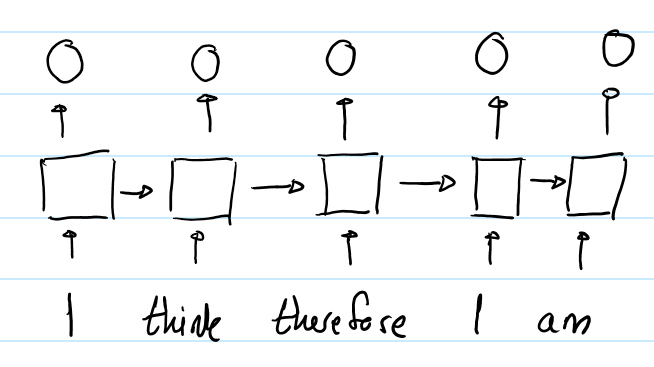 I think therefore I am